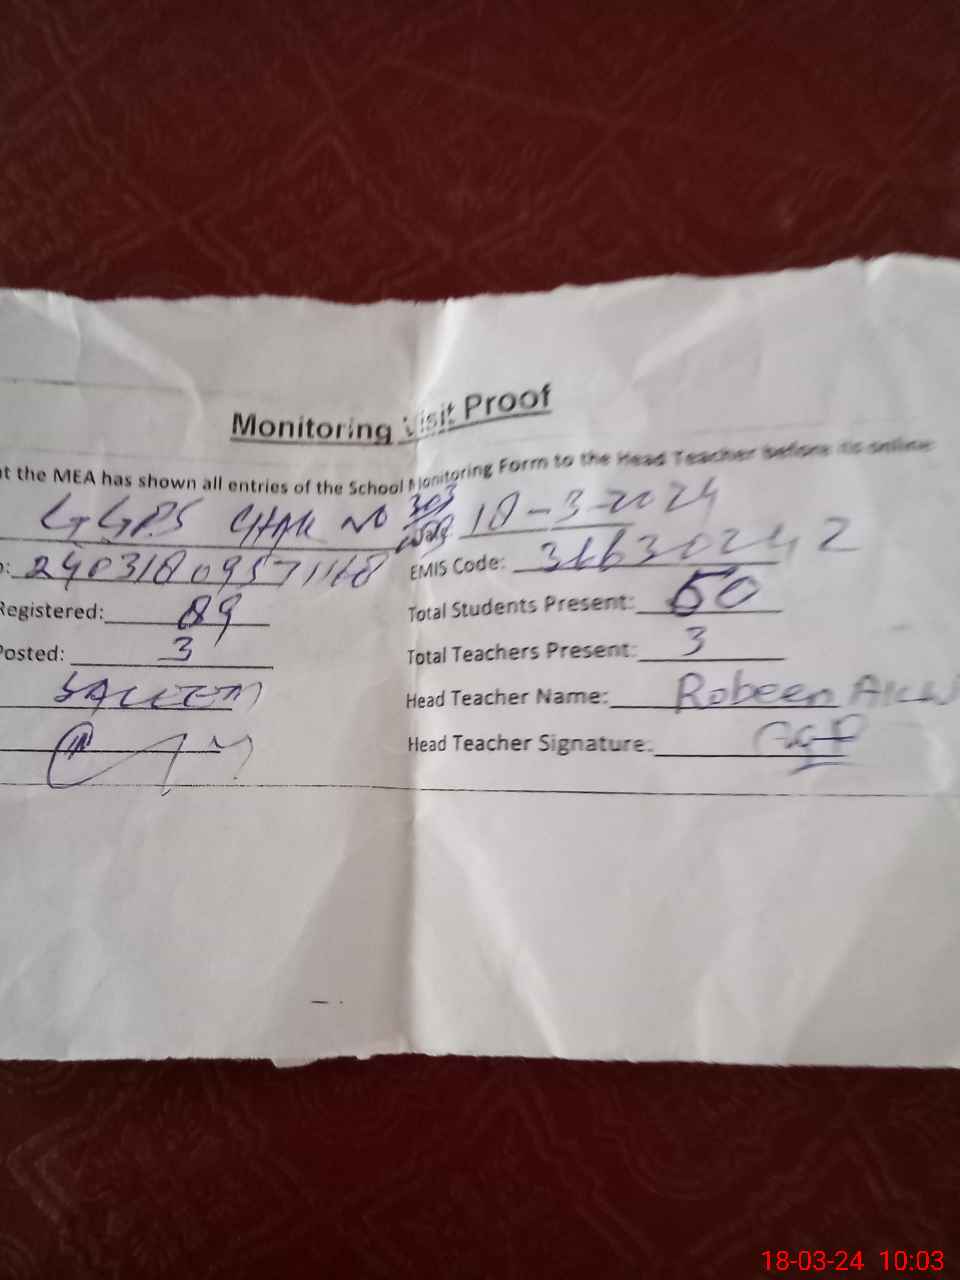 Monitoring Visit Proof
at the MEA has shown all entries of the School Monitoring Form to the Head Teacher before its online
GGPS CHAK NO 303 18-3-2024
: 24031809571168 EMIS Code: 36630242
Registered: 89 Total Students Present: 50
Posted: 3 Total Teachers Present: 3
SALEEM Head Teacher Name: Robeen
Head Teacher Signature:
18-03-24 10:03